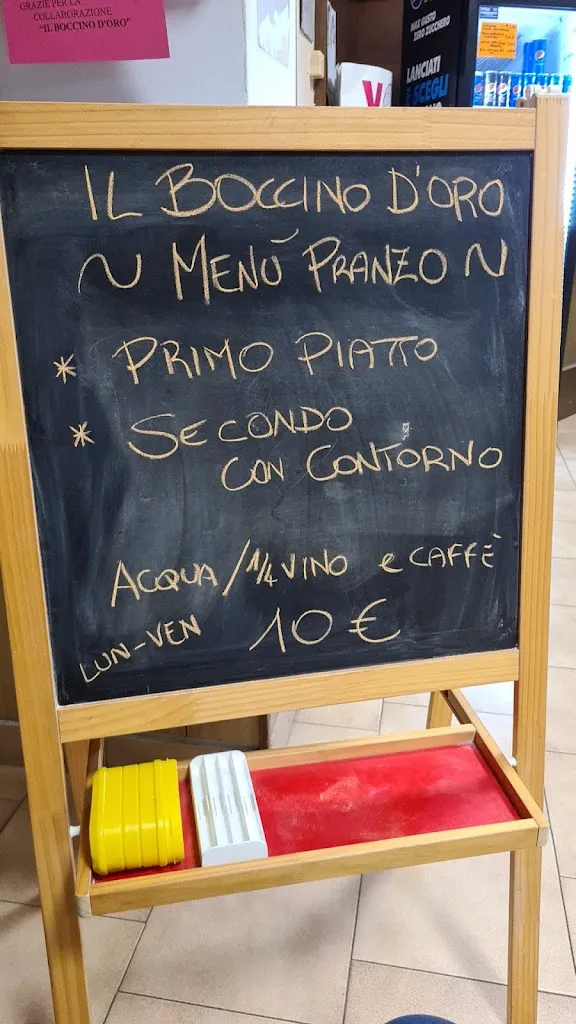 GRAZIE PER LA
COLLABORAZIONE
"IL BOCCINO D'ORO"
MAX GUSTO
ZERO ZUCCHERO
LANCIATI
E SCEGLI
IL BOCCINO D'ORO
~ MENÙ PRANZO ~
* PRIMO PIATTO
* SECONDO
CON CONTORNO
ACQUA / 1/4 VINO e CAFFÈ
LUN-VEN 10 €